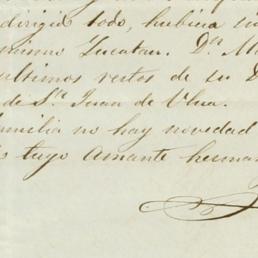 dirigió todo, hubiera
mismo Yucatan. Dn.
ultimos restos de su
de Sn. Juan de Ulua.
familia no hay novedad
tuyo Amante